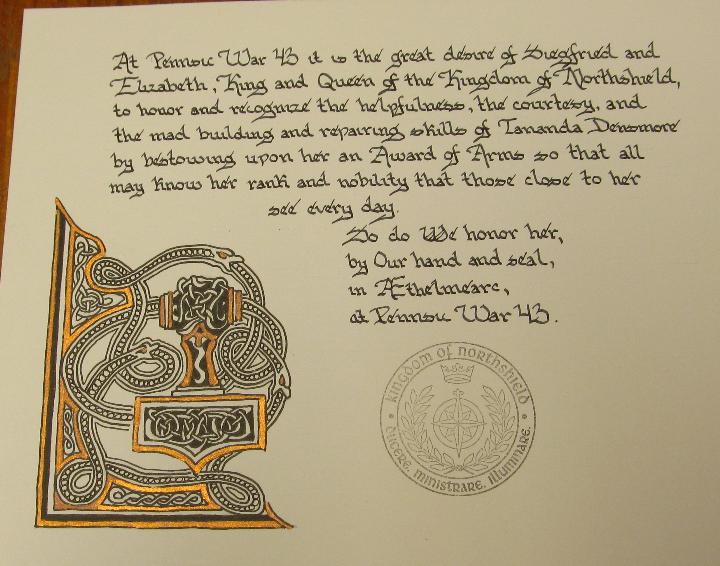 At Pennsic War 43 it is the great desire of Siegfried and
Elizabeth, King and Queen of the Kingdom of Northshield,
to honor and recognize the helpfulness, the courtesy, and
the mad building and repairing skills of Tananda Densmore
by bestowing upon her an Award of Arms so that all
may know her rank and nobility that those close to her
see every day.
So do We honor her,
by Our hand and seal,
in Æthelmearc,
at Pennsic War 43.
Kingdom of Northshield
Ducere. Ministrare. Illuminare.